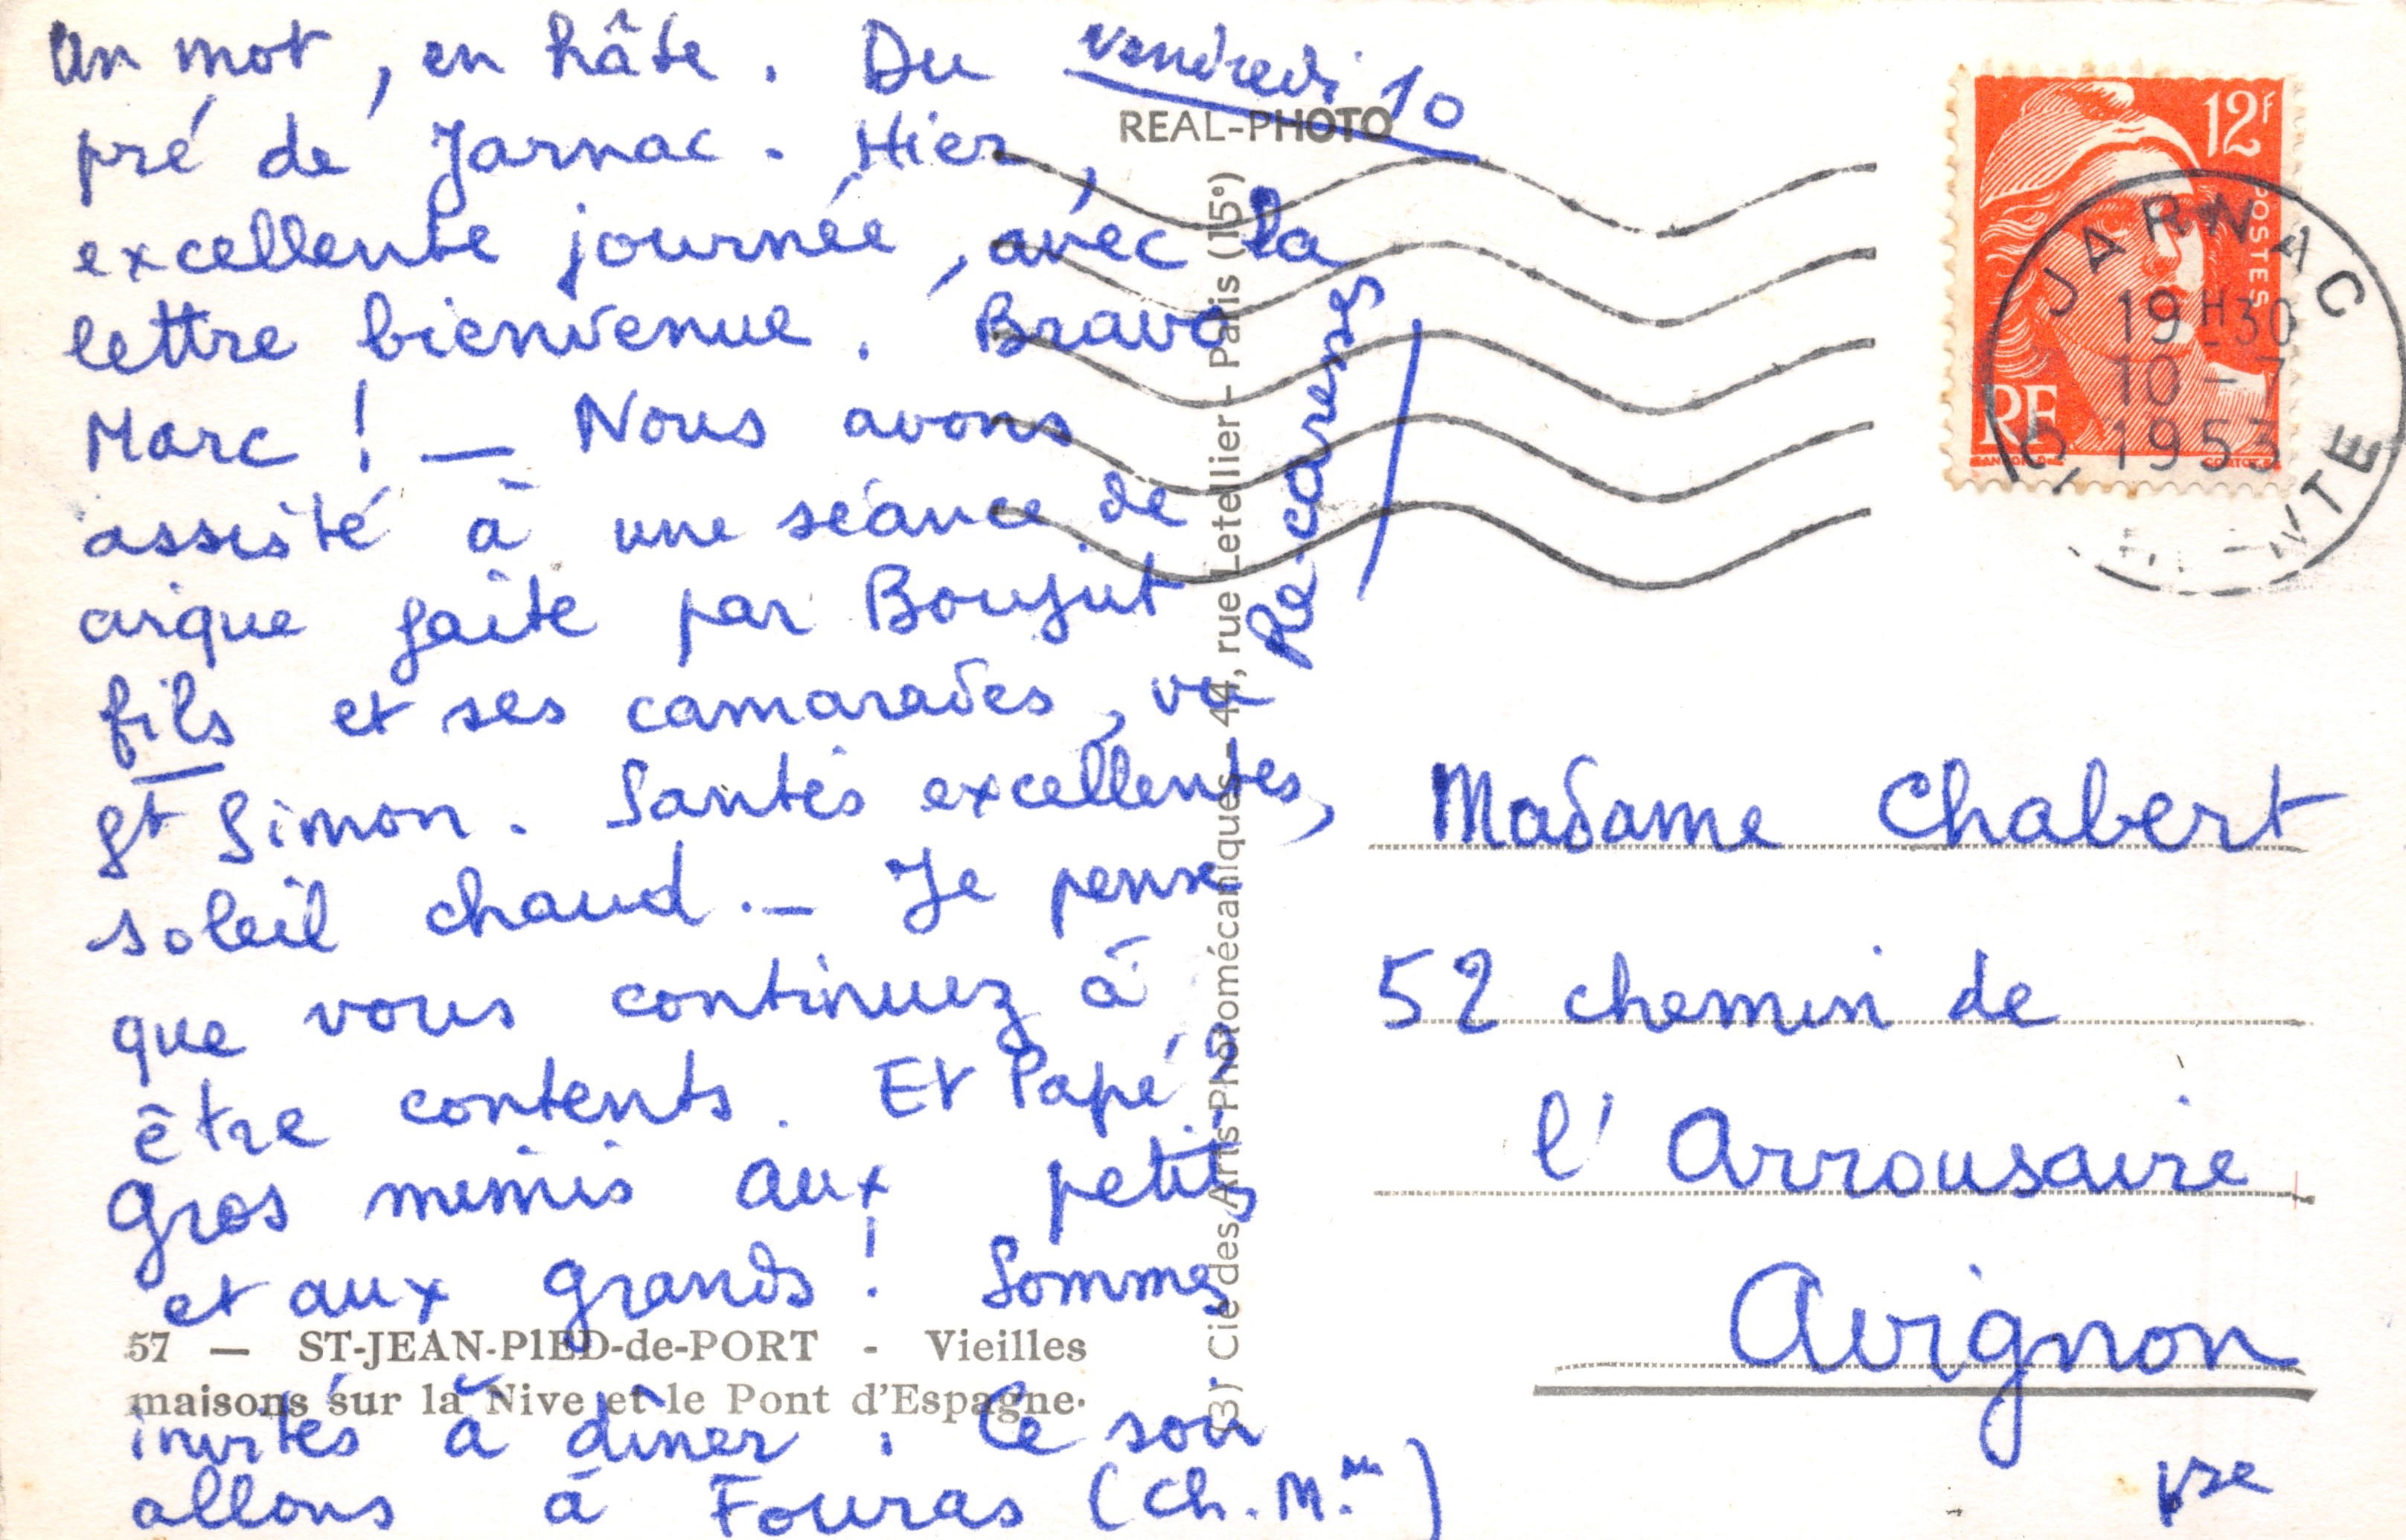 vendredi 10
Un mot, en hâte. Du
pré de Jarnac. Hier,
excellente journée, avec la
lettre bienvenue. Bravo
Marc ! — Nous avons
assisté à une séance de
cirque faite par Boujut
fils et ses camarades, va
St Simon. Santés excellentes,
soleil chaud. — Je pense
que vous continuez à
être contents. Et Papé ?
Gros mimis aux petits
et aux grands ! Sommes
invités à dîner. Ce soir
allons à Fouras (Ch. M.me)
REAL-PHOTO
(3) Cie des Arts Photomécaniques - 44, rue Letellier - Paris (15e)
57 — ST-JEAN-PIED-de-PORT - Vieilles
maisons sur la Nive et le Pont d'Espagne.
12F
POSTES
RF
JARNAC
19H30
10-7
1953
Madame Chabert
52 chemin de
l'Arrousaire
Avignon
Vse